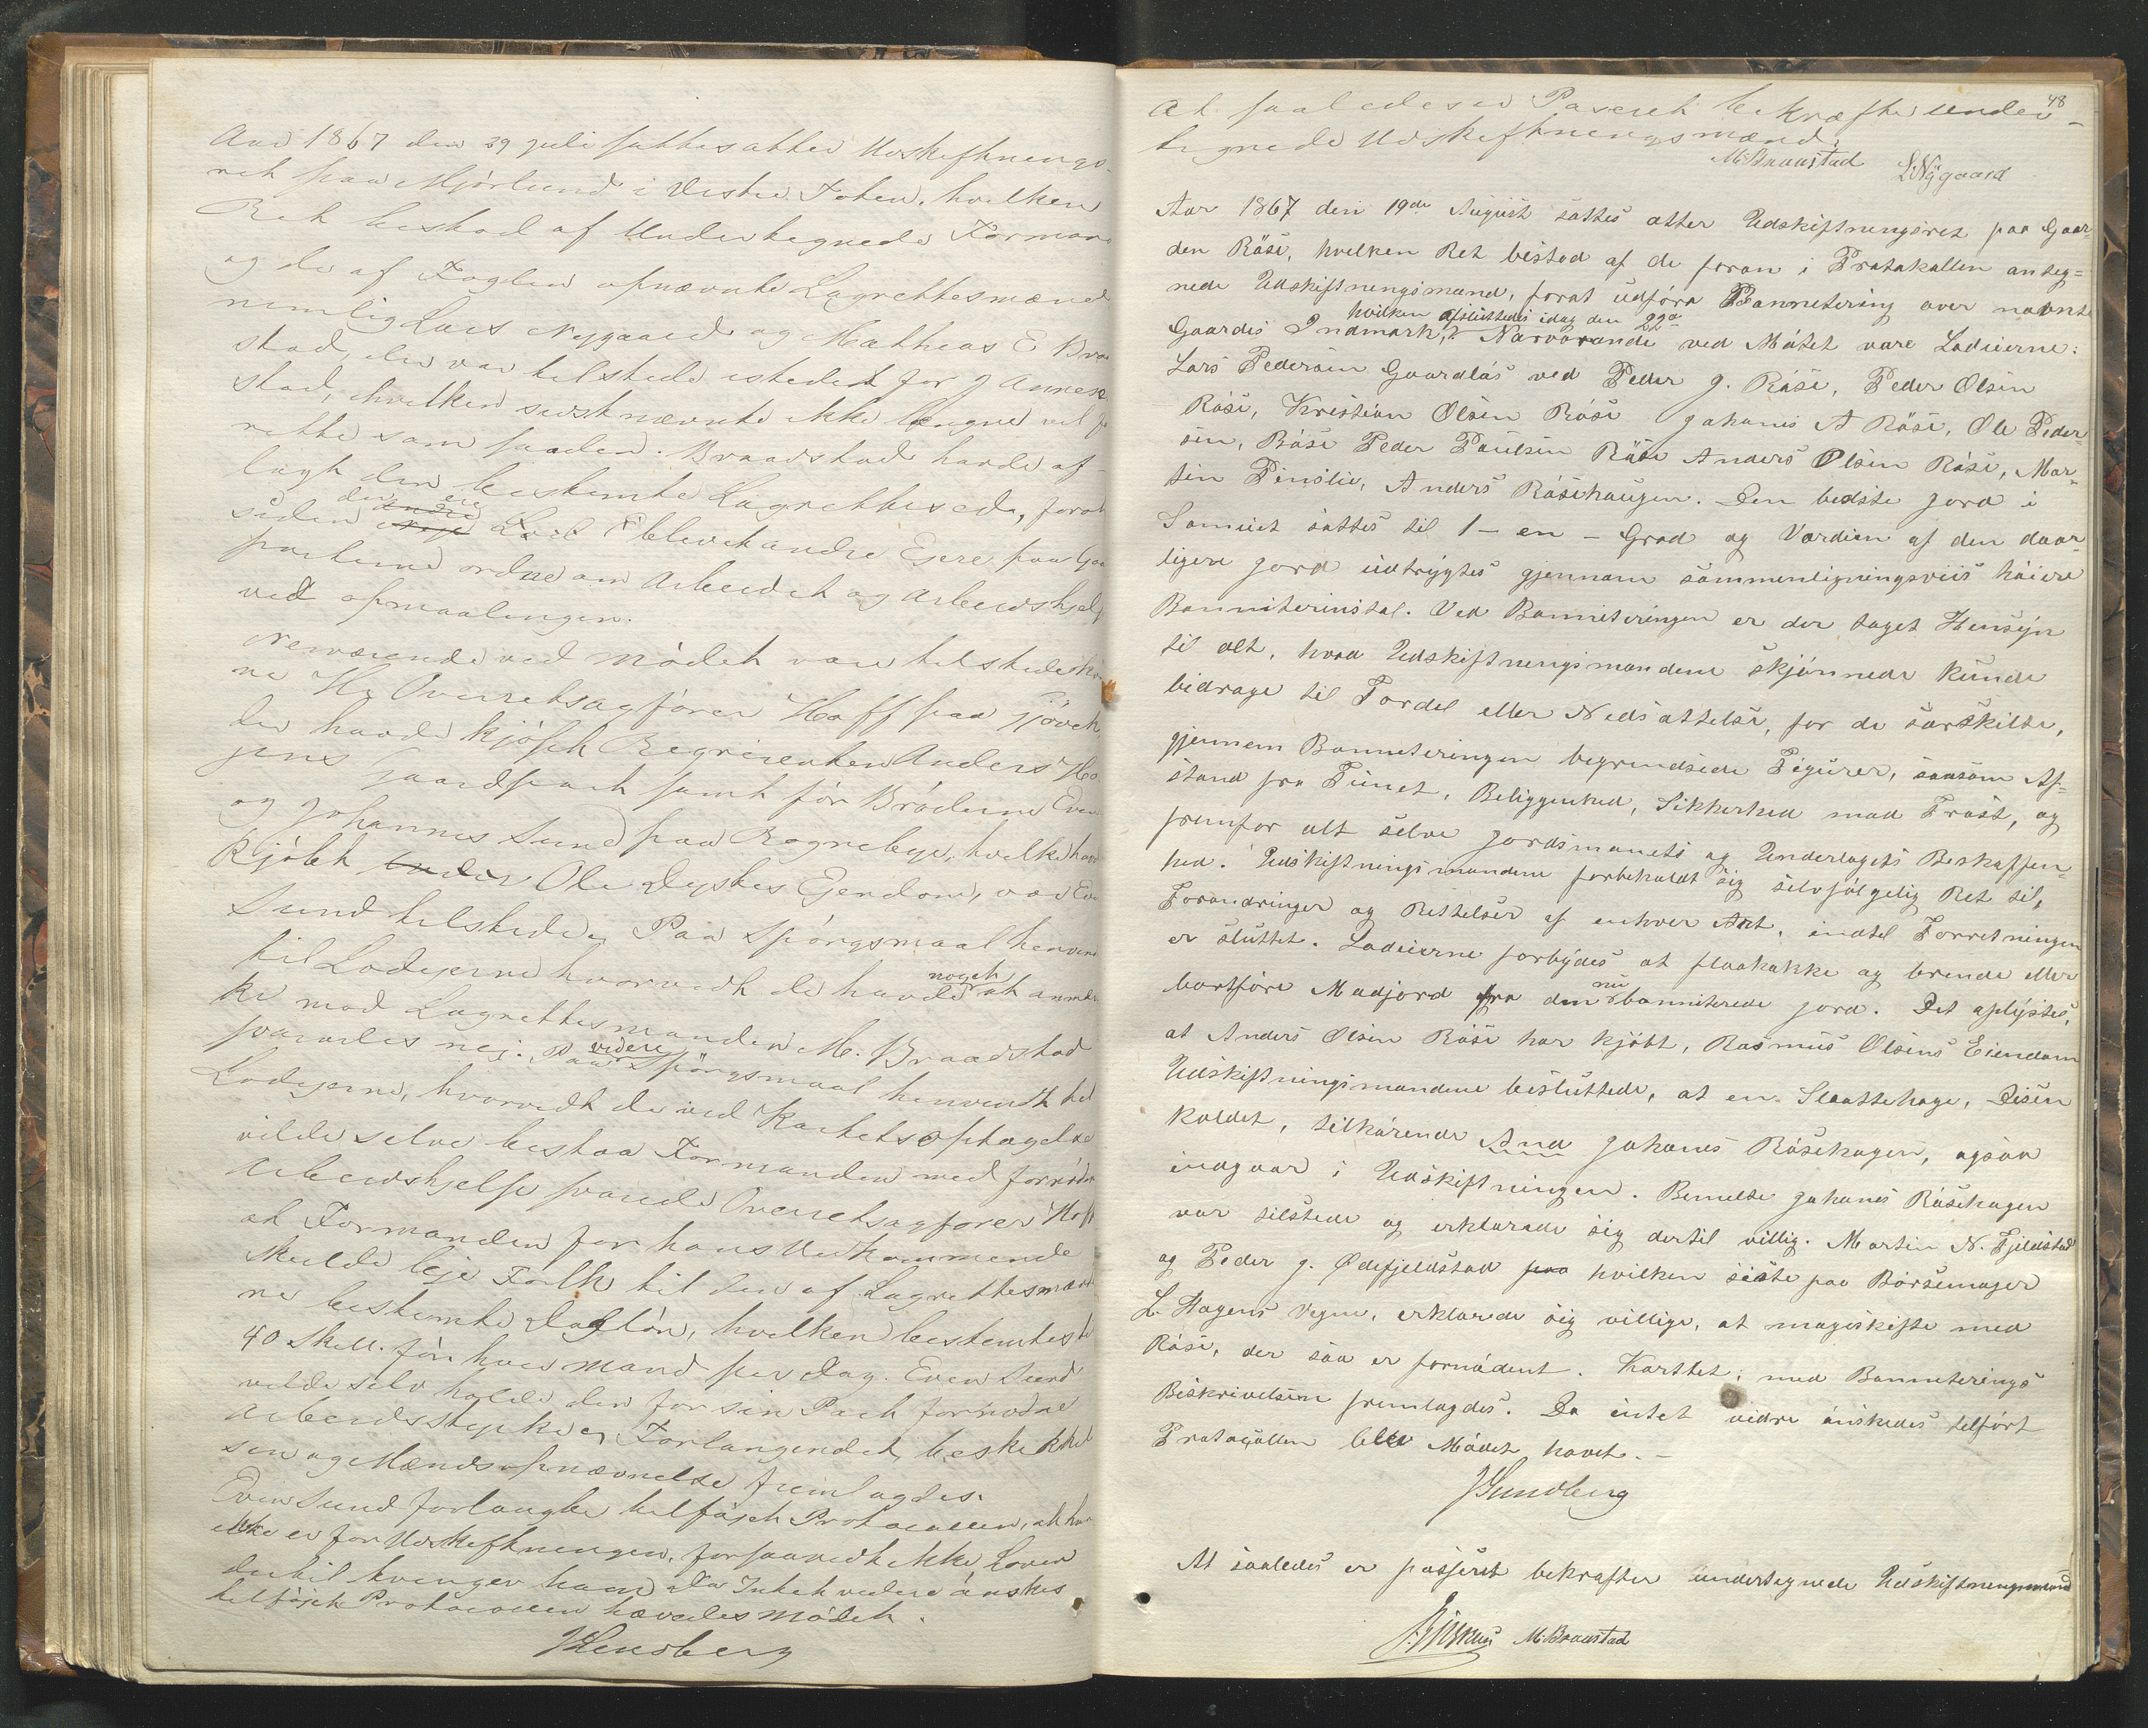 Aar 1867 den 29 juli sattes atter Udskiftnengs-
ret paa Mjörlund i Vestre Toten, hvilken
Ret bestod af Undertegnede Forman
og de af Fogden opnævnte Lagrettesmænd
nemlig Lars Nygaard og Mathias E Braa
stad, der var tilstede istedet for J Annex
stad, hvilken sidstnævnte ikke længer vil
rette som saadan. Braadstad havde af-
lagt den bestemte Lagrettesed, forat
siden den andre
parterne ordne om Arbeidet og Arbeidshjelp
ved opmaalingen.
Nerværende ved mödet vare tilstede
ne Hr Overretsagfører Hoff paa Gjövik
der havde kjöpt Regnienten Anders
jens gaardpart samt for Bröderne Even
og Johannes Sund paa Rognebye, hvilke havd
Kjöbt Ole Dystes Ejendom, var Even
Sund tilstede. Paa Spörgsmaal henvend
til Lodejerne hvorvidt de havde noget at anmær
ke mod Lagrettesmanden M. Braadstad
svaredes nej. Paa videre Spörgsmaal henvendt til
Lodejerne, hvorvidt de ved Kartets optagelse
vilde selve bestaa Formanden med fornöden
Arbeidshjelp svarede Overretsagfører Hoff
at Formanden for hans Vedkommende
skulde leje Folk til den af Lagrettesmænd
ne bestemte Daglön, hvilken bestemtes til
40 Skill. för hver mand per Dag. Even Sund
vilde selv holde den for sin Part fornödne
Arbeidsstyrke. Forlangendet, beskikkel
sen og Mændsopnævnelse fremlagdes.
Even Sund forlangte tilföjet Protocollen, at han
ikke er for Udskiftningen, forsaavidt ikke Loven
dertil tvinger ham. Da Intet videre önskes
tilföjet Protocollen hævedes Mödet.
48
At saaledes er Paseret bekræfte under-
tegnede Udskiftnengsmænd.
M. Braastad L. Nygaard
Aar 1867 den 19de August sattes atter Udskiftningsret paa Gaar-
den Röse, hvilken Ret bestod af de foran i Protokollen anteg=
nede Udskiftningsmænd, forat udföra Bonnetering over nævnte
hvilken afsluttedes idag den 22de
Gaardes Indmark, Nærværende ved Mötet vare Lodeierne:
Lars Pedersen Gaardlös ved Peder J. Röse, Peder Olsen
Röse, Kristian Olsen Röse Johanes A Röse, Ole Peder
sen, Röse Peder Paulsen Röse Anders Olsen Röse, Mar-
tin Finslie, Anders Rösehaugen. Den bedste jord i
Sameiet sattes til 1 - en - Grad og Værdien af den daar-
ligere jord udtrygtes gjennom sammenligningsviis höiere
Bonniterinstal. Ved Bonniteringen er der taget Hensyn
til alt, hvad Udskiftningsmændene skjönnede kunde
bidrage til Fordel eller Nedsættelse, for de særskilte,
gjennem Bonneteringen begrændsede Figurer, saasom Af-
stand fra Tunet, Beliggenhed, Sikkerhed mod Frost, og
fremfor alt selve jordsmonets og Underlagets Beskaffen-
hed. Udskiftningsmændene forbeholdt sig selvfölgelig Ret til,
Forandringer og Rettelser af enhver Art, indtil Forretningen
er sluttet. Lodeierne forbydes at flaahakke og brende eller
bortföre Madjord fra den nu bonniterede jord. Det oplystes,
at Anders Olsen Röse har kjöbt, Rasmus Olsens Eiendom
Udskiftningsmændene besluttede, at en Slaattehage, Disen
kaldet, tilhörende And Johanes Rösehagen, ogsaa
indgaar i Udskiftningen. Bemelte Johanes Rösehagen
var tilstede og erklærede sig dertil villig. Martin N. Fjeldstad
og Peder J. Ødefjeldstad paa hvilken siste paa Börsemager
L. Hagens Vegne, erklærede sig villige, at magiskifte med
Röse, der saa er fornödent. Karttet, med Bonneterings
Beskrivelsen fremlagdes. Da intet vidre önskedes tilfört
Protocollen blev Mödet hævet. -
JSundberg
At saaledes er passeret bekræfter undertegnede Udskiftningsmænd
M. Braastad